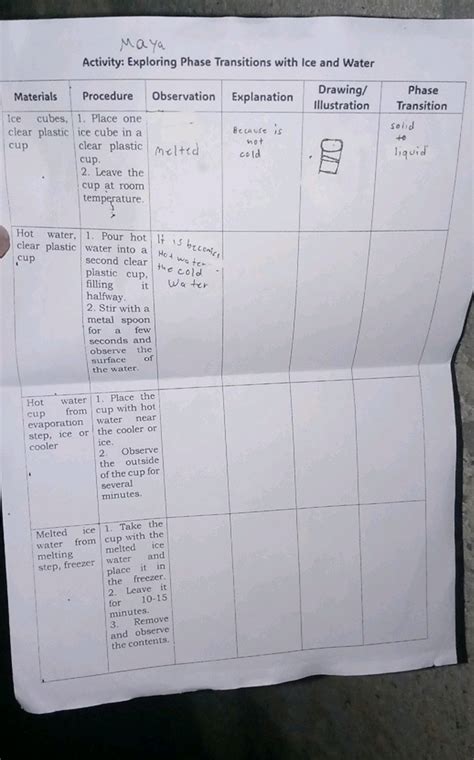 Maya
Activity: Exploring Phase Transitions with Ice and Water
Materials
Procedure
Observation
Explanation
Drawing/
Illustration
Phase
Transition
Ice cubes,
clear plastic
cup
1. Place one
ice cube in a
clear plastic
cup.
2. Leave the
cup at room
temperature.
Melted
Because is
not
cold
solid
to
liquid
Hot water,
clear plastic
cup
1. Pour hot
water into a
second clear
plastic cup,
filling it
halfway.
2. Stir with a
metal spoon
for a few
seconds and
observe the
surface of
the water.
It is becomes
Hot water
the cold
Water
Hot water
cup from
evaporation
step, ice or
cooler
1. Place the
cup with hot
water near
the cooler or
ice.
2. Observe
the outside
of the cup for
several
minutes.
Melted ice
water from
melting
step, freezer
1. Take the
cup with the
melted ice
water and
place it in
the freezer.
2. Leave it
for 10-15
minutes.
3. Remove
and observe
the contents.